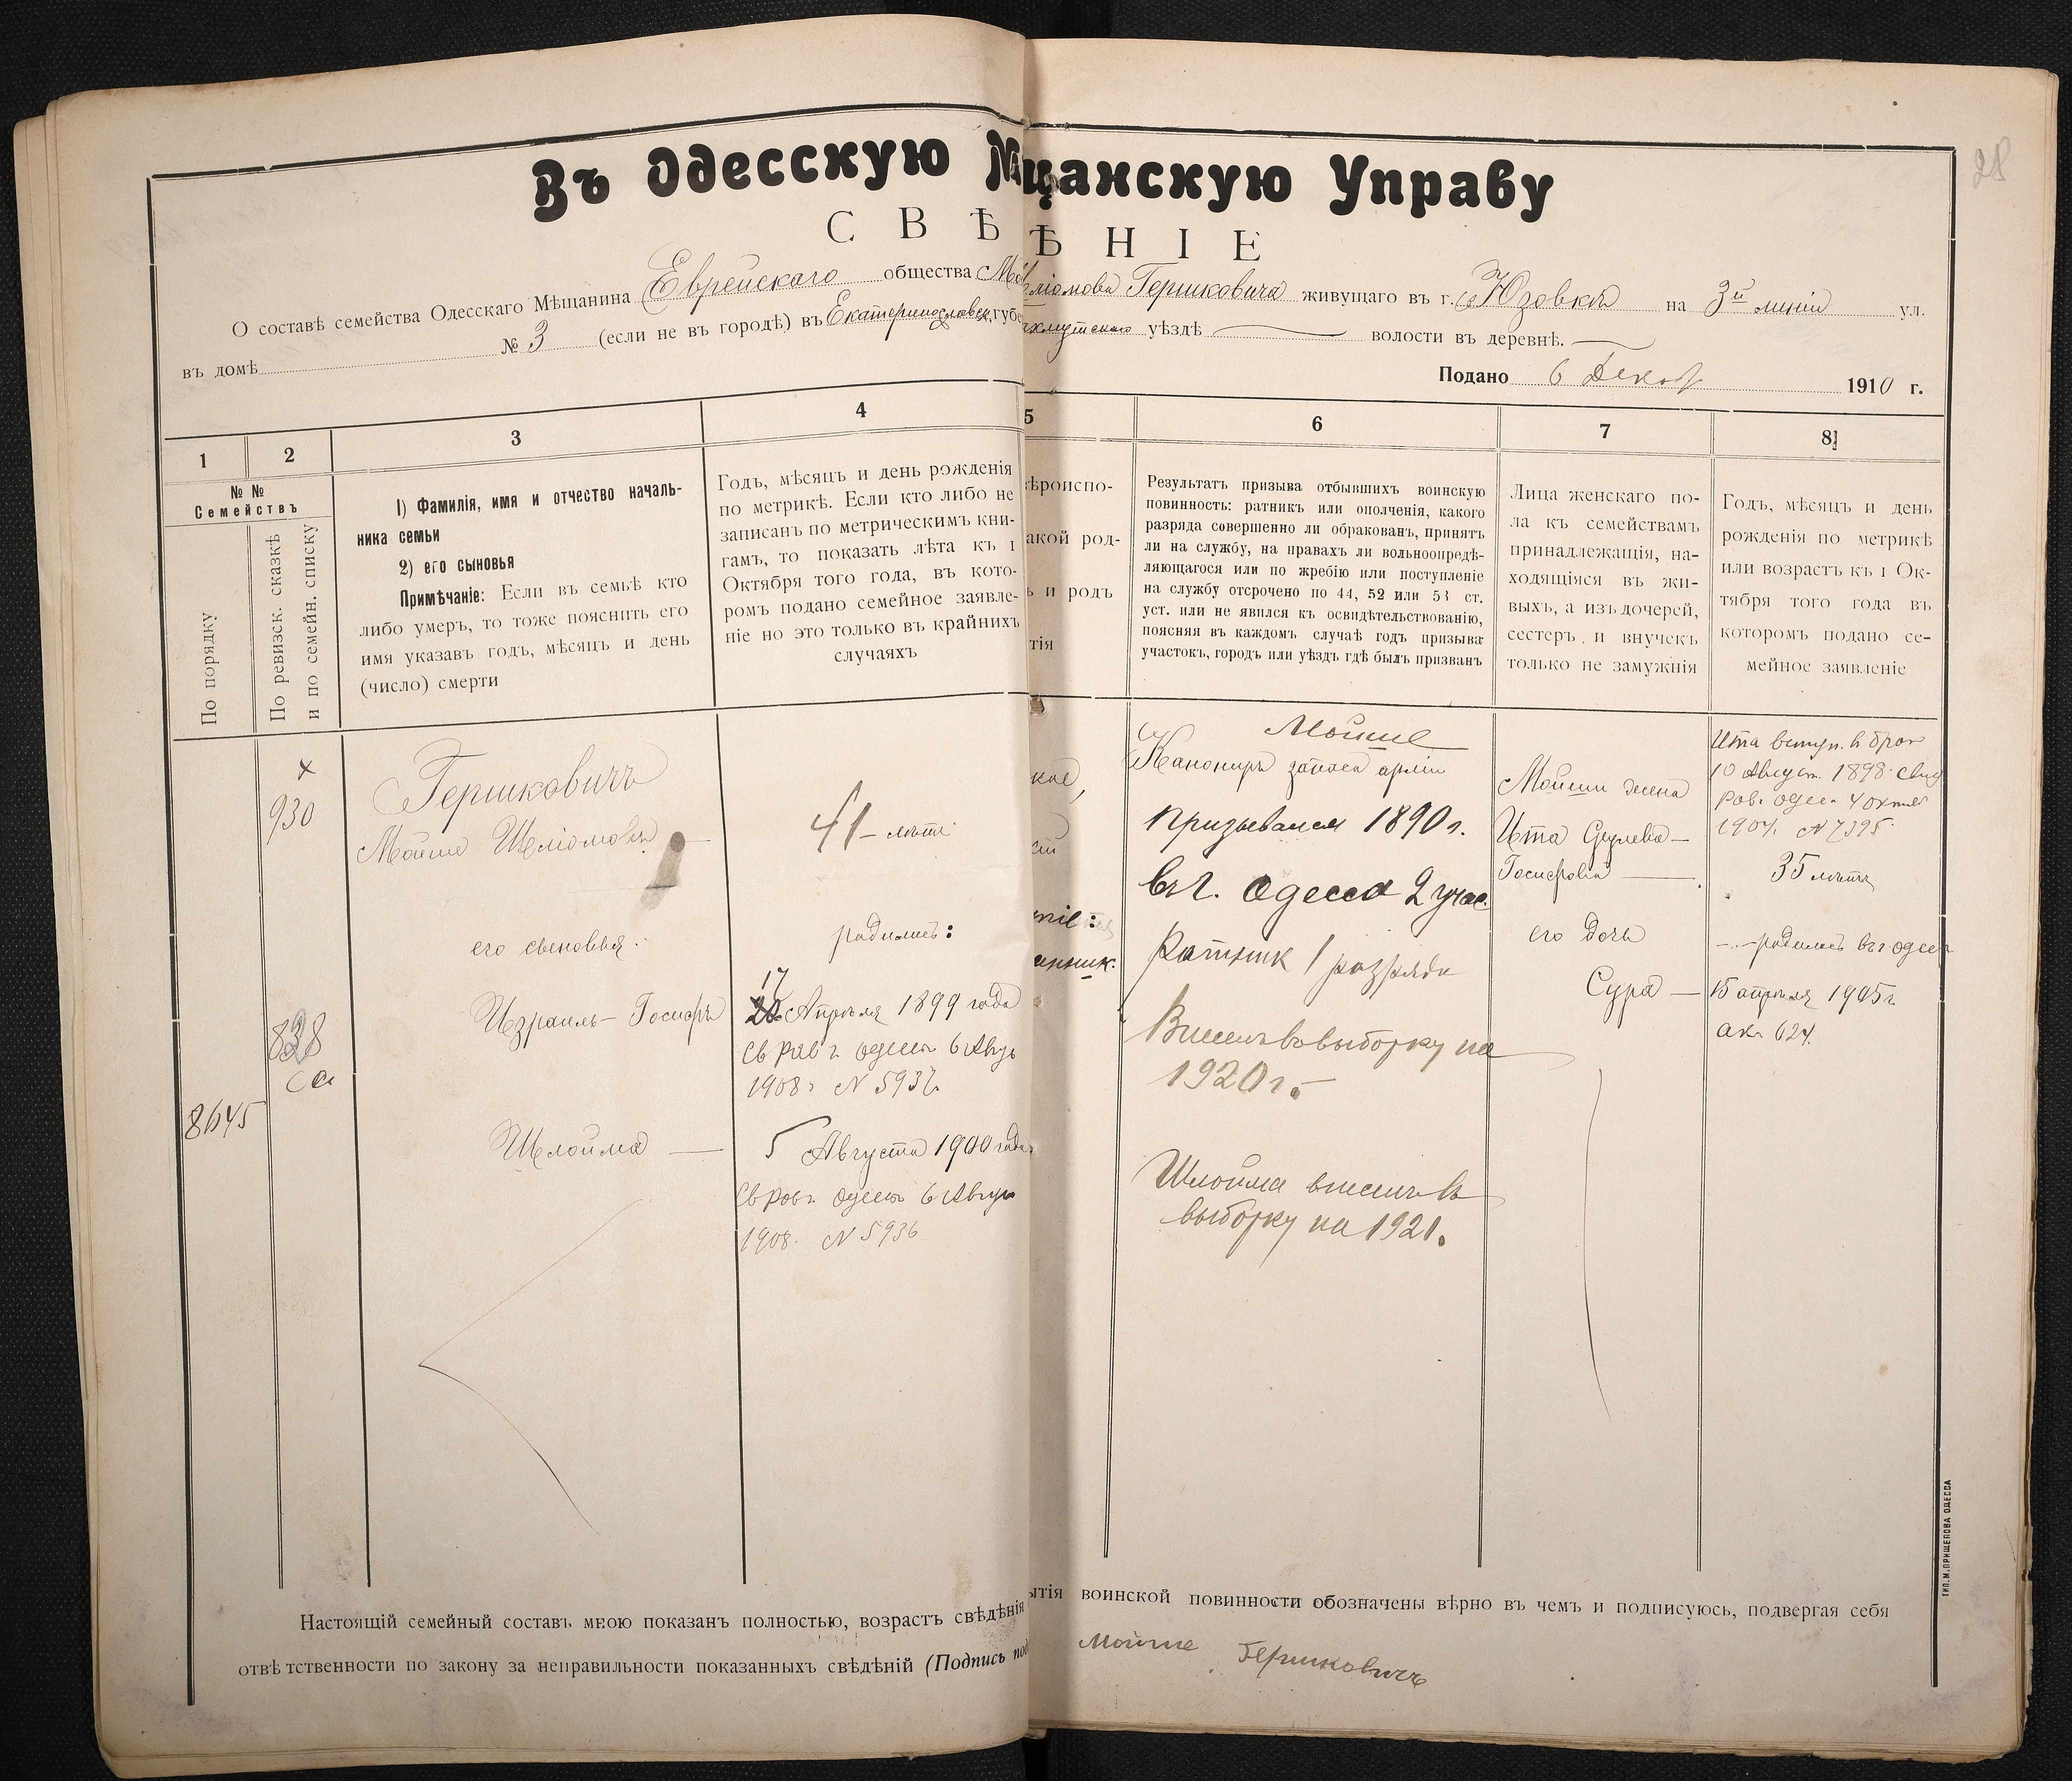 28
Въ Одесскую М щанскую Управу
СВѢ ѢНІЕ
О составѣ семейства Одесскаго Мѣщанина Еврейскаго общества Гершковича живущаго въ г. Юзовкѣ на 3й линіи ул.
въ домѣ № 3 (если не въ городѣ) въ Екатеринославск. губе уѣздѣ волости въ деревнѣ.
Подано 6 Декаб 1910 г.
1 2 3 4 5 6 7 8
№ №
Семействъ
По порядку
По ревизск. сказкѣ
и по семейн. списку
1) Фамилія, имя и отчество началь-
ника семьи
2) его сыновья
Примѣчаніе: Если въ семьѣ кто
либо умеръ, то тоже пояснить его
имя указавъ годъ, мѣсяцъ и день
(число) смерти
Годъ, мѣсяцъ и день рожденія
по метрикѣ. Если кто либо не
записанъ по метрическимъ кни-
гамъ, то показать лѣта къ 1
Октября того года, въ кото-
ромъ подано семейное заявле-
ніе но это только въ крайнихъ
случаяхъ
ѣроиспо-
акой род-
ь и родъ
тія
Результатъ призыва отбывшихъ воинскую
повинность: ратникъ или ополченія, какого
разряда совершенно ли обракованъ, принятъ
ли на службу, на правахъ ли вольноопредѣ-
ляющагося или по жребію или поступленіе
на службу отсрочено по 44, 52 или 53 ст.
уст. или не явился къ освидѣтельствованію,
поясняя въ каждомъ случаѣ годъ призыва
участокъ, городъ или уѣздъ гдѣ былъ призванъ
Лица женскаго по-
ла къ семействамъ
принадлежащія, на-
ходящіяся въ жи-
выхъ, а изъ дочерей,
сестеръ и внучекъ
только не замужнія
Годъ, мѣсяцъ и день
рожденія по метрикѣ
или возрастъ къ 1 Ок-
тября того года въ
которомъ подано се-
мейное заявленіе
х
930
838
са
8645
Гершковичъ
Мойше Шліомовъ
его сыновья:
Израиль-Іосифъ
Шлойма
41 - лѣтъ
родились:
17
Апрѣля 1899 года
Св Рав г. Одессы 6 Авгус
1908 г N 5937
5 Августа 1900 года
Св Рав г. Одессы 6 Авгус
1908. N 5936
кое,
ніе:
Мойше
Канониръ запаса арміи
призывался 1890 г.
въ г. Одесса 2 учас.
Ратник 1 разряда
Внесенъ въ выборку на
1920 г.
Шлойма внесенъ в
выборку на 1921.
Мойши жена
Ита Срулева-
Іосифовна
его дочь
Сура
Ита вступ. в брак
10 Август. 1898 свид
рав. Одес. 4 октяб
1904 N 7395
35 лѣтъ
родилась въ г Одес
15 апрѣля 1905 г.
ак. 624
Настоящій семейный составъ мною показанъ полностью, возрастъ свѣдѣнія ытія воинской повинности обозначены вѣрно въ чемъ и подписуюсь, подвергая себя
отвѣтственности по закону за неправильности показанныхъ свѣдѣній (Подпись под Мойше Гершковичъ
ТИП. М. ПРИЩЕПОВА ОДЕССА